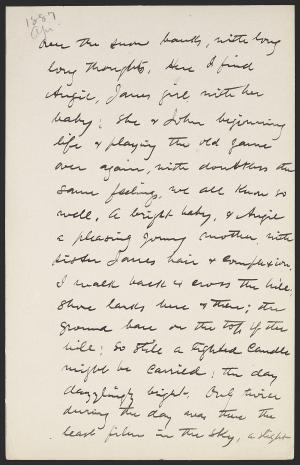 1887
Apr
over the snow banks, with long
long thoughts. Here I find
Angie, Janes girl, with her
baby; she & John beginning
life & playing the old game
over again, with doubtless the
same feelings, we all know so
well. A bright baby, & Angie
a pleasing young mother, with
sister Janes hair & complexion.
I walk back & cross the hill,
shore larks here & there; the
ground bare on the top of the
hill; so still a lighted candle
might be carried; the day
dazzlingly bright. Only twice
during the day was there the
least film in the sky, a slight